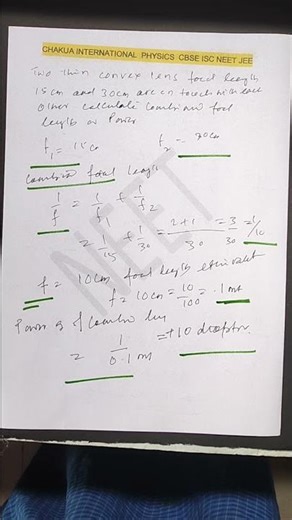 CHAKUA INTERNATIONAL PHYSICS CBSE ISC NEET JEE
Two thin convex lens focal length
15cm and 30cm are in touch with each
other calculate combined focal
length or Power
f₁ = 15cm f₂ = 30cm
Combined focal length
1/f = 1/f₁ + 1/f₂
= 1/15 + 1/30 = 2+1/30 = 3/30 = 1/10
f = 10cm focal length equivalent
f = 10cm = 10/100 = .1 mt
Power of combine
= 1/0.1 mt = +10 dioptre
NEET